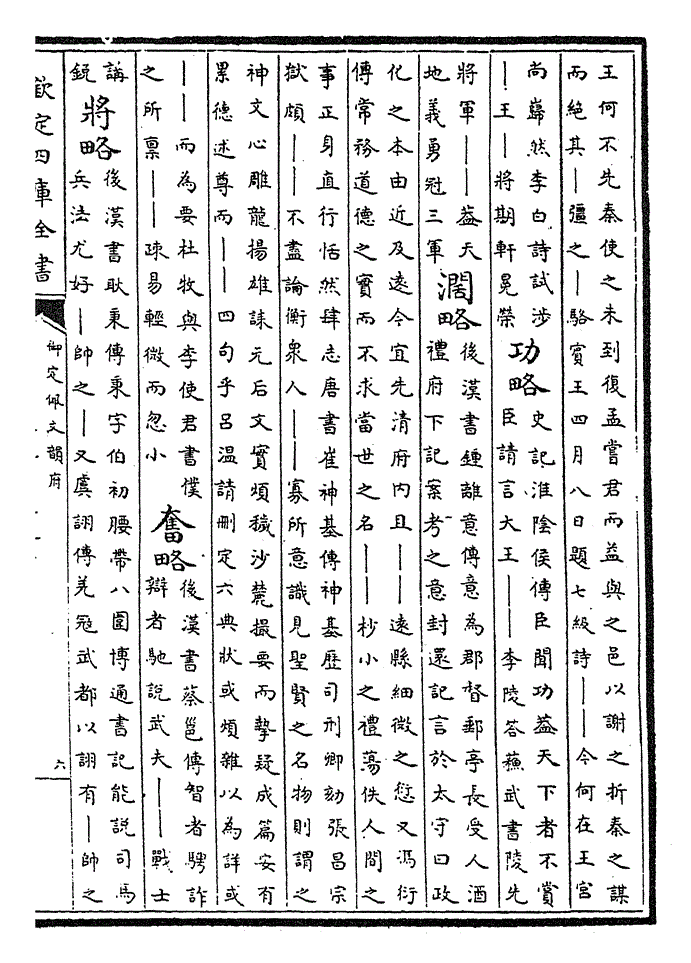 王何不先秦使之未到復孟嘗君而益與之邑以謝之折秦之謀
而絕其——彊之—駱賓王四月八日題七級詩——今何在王宮
尚巋然李白詩試涉
—王—將期軒冕榮
功略
史記淮陰侯傳臣聞功葢天下者不賞
臣請言大王——李陵答蘇武書陵先
將軍——葢天
地義勇冠三軍
濶略
後漢書鍾離意傳意為郡督郵亭長受人酒
禮府下記案考之意封還記言於太守曰政
化之本由近及遠今宜先清府內且——遠縣細微之愆又馮衍
傳常務道德之實而不求當世之名——杪小之禮蕩佚人間之
事正身直行恬然肆志唐書崔神基傳神基歷司刑卿劾張昌宗
獄頗——不盡論衡衆人——寡所意識見聖賢之名物則謂之
神文心雕龍揚雄誄元后文實煩穢沙麓撮要而摯疑成篇安有
累德述尊而——四句乎呂温請刪定六典狀或煩雜以為詳或
——而為要杜牧與李使君書僕
之所禀——疎易輕微而忽小
奮略
後漢書蔡邕傳智者騁詐
辯者馳說武夫——戰士
講
銳
將略
後漢書耿秉傳秉字伯初腰帶八圍博通書記能說司馬
兵法尤好—帥之—又虞詡傳羌冦武都以詡有—帥之
欽定四庫全書
御定佩文韻府
六